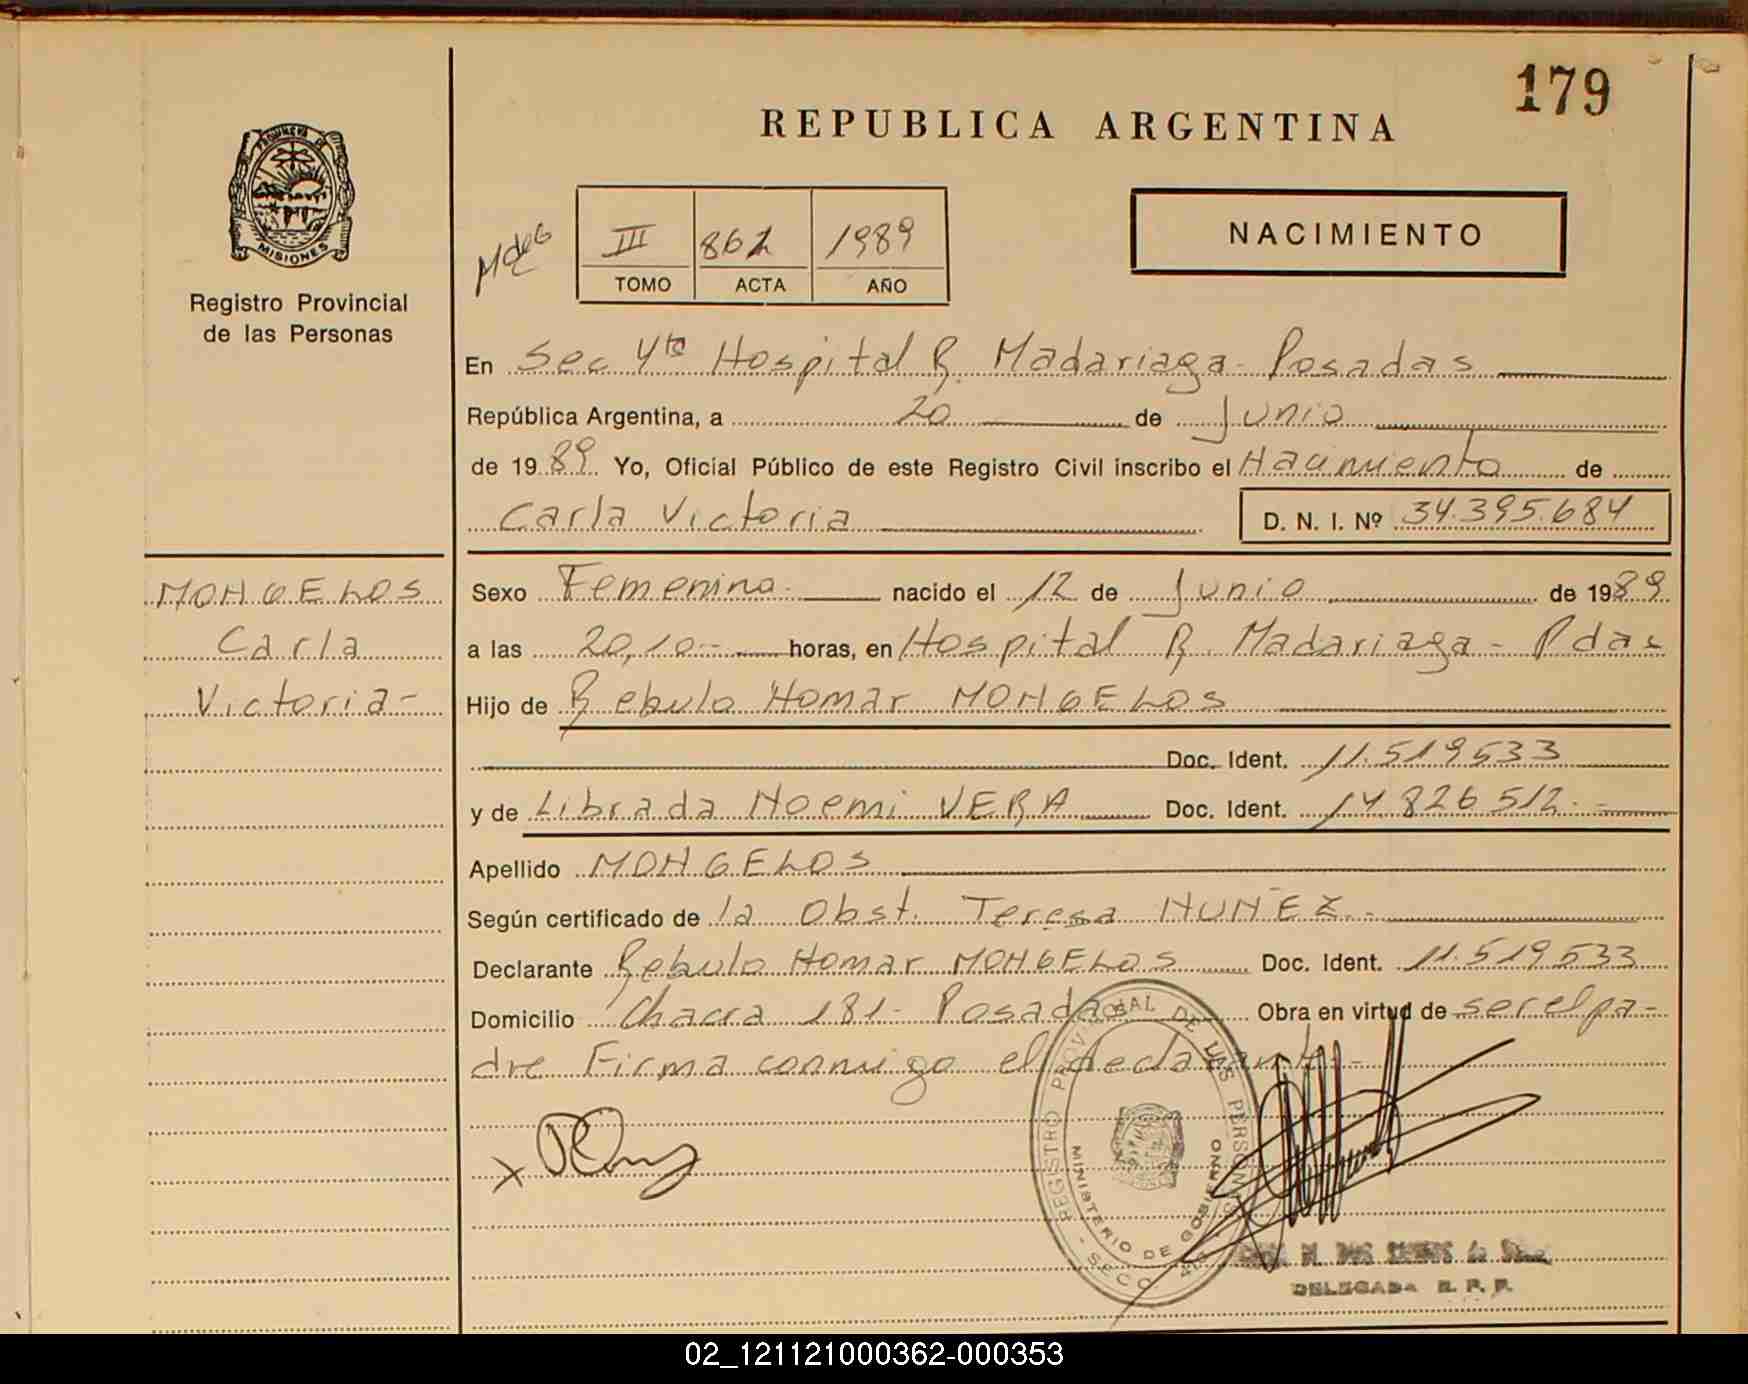 179
REPUBLICA ARGENTINA
PROVINCIA DE
MISIONES
Registro Provincial
de las Personas
III 862 1989
TOMO ACTA AÑO
NACIMIENTO
En Sec 4ta Hospital R. Madariaga - Posadas
República Argentina, a 20 de Junio
de 1989 Yo, Oficial Público de este Registro Civil inscribo el Nacimiento de
Carla Victoria D. N. I. Nº 34.395.684
MONGELOS
Carla
Victoria-
Sexo Femenino. nacido el 12 de Junio de 1989
a las 20,10.- horas, en Hospital R. Madariaga - Pdas
Hijo de Rebulo Homar MONGELOS
Doc. Ident. 11.519533
y de Librada Noemi VERA Doc. Ident. 14.826512.-
Apellido MONGELOS
Según certificado de la Obst. Teresa NUÑEZ.-
Declarante Rebulo Homar MONGELOS Doc. Ident. 11.519533
Domicilio Chacra 181- Posadas Obra en virtud de ser el pa-
dre Firma conmigo el declarante.-
X
REGISTRO PROVINCIAL DE LAS PERSONAS
MINISTERIO DE GOBIERNO
- SECC. 4ta -
DELEGADA R. P. P.
02_121121000362-000353